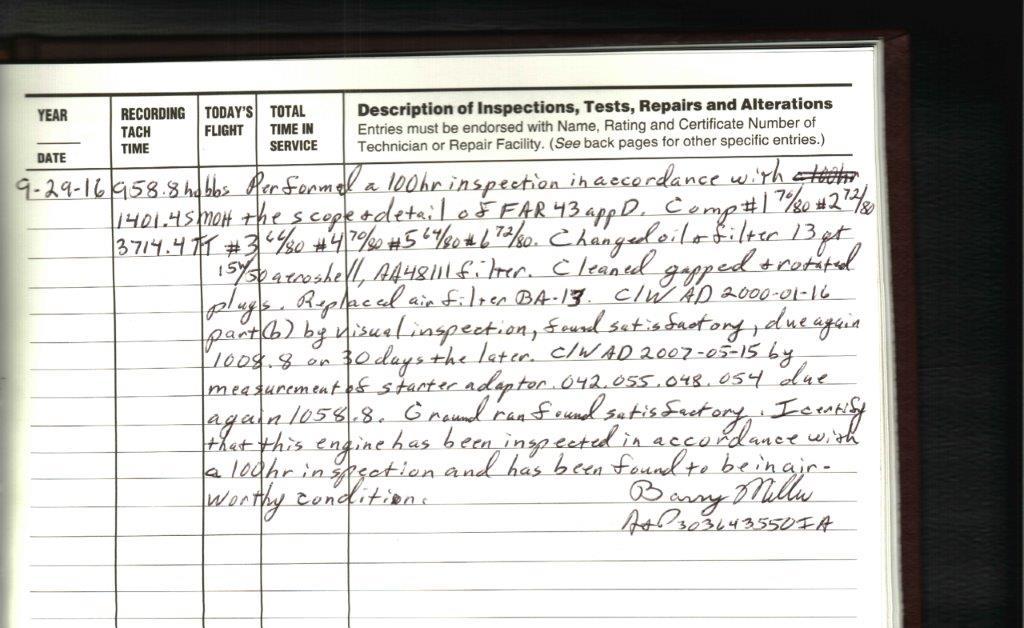 YEAR
DATE
RECORDING
TACH
TIME
TODAY'S
FLIGHT
TOTAL
TIME IN
SERVICE
Description of Inspections, Tests, Repairs and Alterations
Entries must be endorsed with Name, Rating and Certificate Number of
Technician or Repair Facility. (See back pages for other specific entries.)
9-29-16 958.8hobbs Performed a 100hr inspection in accordance with a 100hr
1401.4SMOH the scope + detail of FAR 43 app D. Comp #1 76/80 #2 72/80
3714.4TT #3 66/80 #4 70/80 #5 64/80 #6 72/80. Changed oil + filter 13 qt
15W/50 aeroshell, AA48111 filter. Cleaned gapped + rotated
plugs. Replaced air filter BA-13. C/W AD 2000-01-16
part (b) by visual inspection, found satisfactory, due again
1008.8 or 30 days the later. C/W AD 2007-05-15 by
measurement of starter adaptor .042 .055 .048 .054 due
again 1058.8. Ground ran found satisfactory. I certify
that this engine has been inspected in accordance with
a 100hr inspection and has been found to be in air-
worthy condition.
Barry Miller
A+P 303643550IA